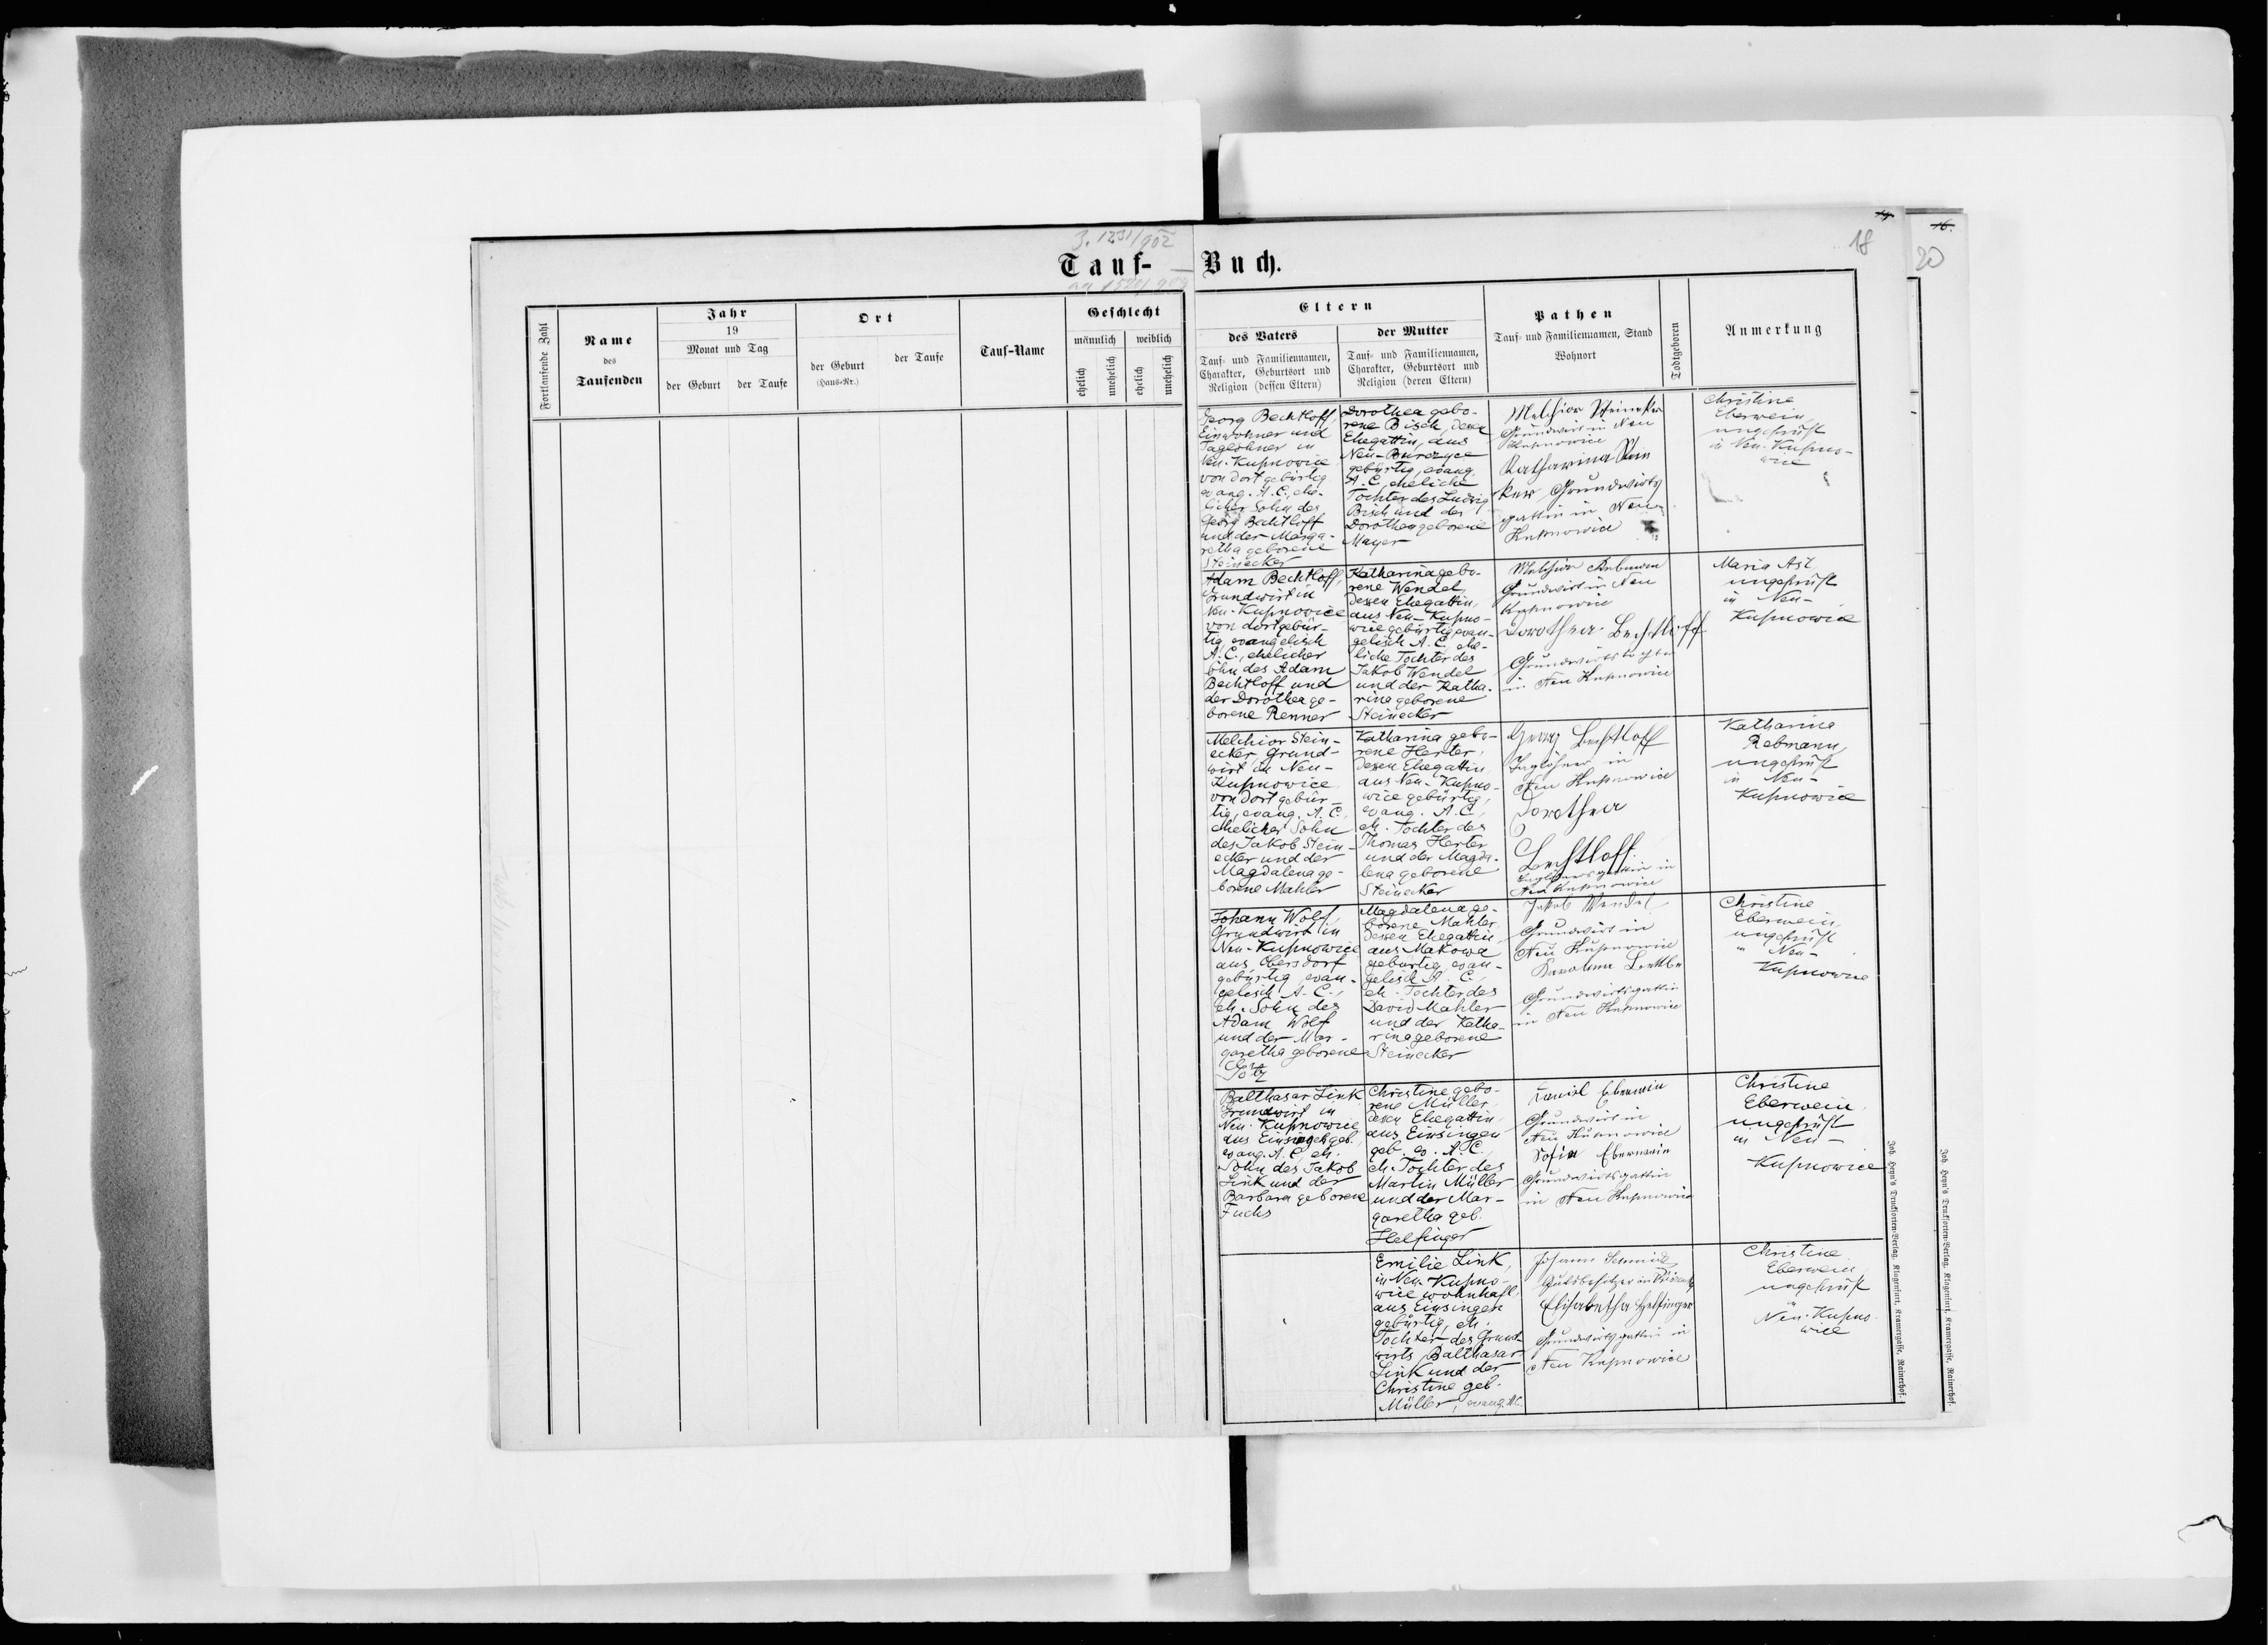 3. 1231/902
Tauf-
Buch.
18
16.
20
Fortlaufende Zahl
Name
des
Taufenden
Jahr
19
Monat und Tag
der Geburt
der Taufe
Ort
der Geburt
(Haus-Nr.)
der Taufe
Tauf-Name
Geschlecht
männlich
weiblich
ehelich
unehelich
ehelich
unehelich
Eltern
des Vaters
Tauf- und Familiennamen,
Charakter, Geburtsort und
Religion (dessen Eltern)
der Mutter
Tauf- und Familiennamen,
Charakter, Geburtsort und
Religion (deren Eltern)
Pathen
Tauf- und Familiennamen, Stand
Wohnort
Todtgeboren
Anmerkung
Georg Bechtloff,
Einwohner und
Taglöhner in
Neu-Kupnowice
von dort gebürtig
evang. A. C., ehe-
licher Sohn des
Georg Bechtloff
und der Marga-
retha geborene
Steinecker
Dorothea gebo-
rene Bisch, deren
Ehegattin, aus
Neu-Burczyce
gebürtig, evang.
A. C., eheliche
Tochter des Ludwig
Bisch und der
Dorothea geborene
Mayer
Melchior Steineker
Grundwirt in Neu
Kupnowice
Katharina Stein
eker Grundwirts
gattin in Neu-
Kupnowice
Christine
Eberwein,
ungeprüft
in Neu-Kupno-
wice
Adam Bechtloff,
Grundwirt in
Neu-Kupnowice
von dort gebür-
tig evangelisch
A. C., ehelicher
Sohn des Adam
Bechtloff und
der Dorothea ge-
borene Renner
Katharina gebo-
rene Wendel,
dessen Ehegattin,
aus Neu-Kupno-
wice gebürtig evan-
gelisch A. C., ehe-
liche Tochter des
Jakob Wendel
und der Katha-
rina geborene
Steinecker
Melchior Rebmann
Grundwirt in Neu
Kupnowice
Dorothea Bechtloff
Grundwirtstochter
in Neu Kupnowice
Maria Ast
ungeprüft
in Neu-
Kupnowice
Melchior Stein-
ecker, Grund-
wirt in Neu-
Kupnowice
von dort gebür-
tig, evang. A. C.,
ehelicher Sohn
des Jakob Stein-
ecker und der
Magdalena ge-
borene Mahler
Katharina gebo-
rene Herter,
dessen Ehegattin,
aus Neu-Kupno-
wice gebürtig,
evang. A. C.,
eh. Tochter des
Thomas Herter
und der Magda-
lena geborene
Steinecker
Georg Bechtloff
Taglöhner in
Neu Kupnowice
Dorothea
Bechtloff
Taglöhnersgattin in
Neu Kupnowice
Katharina
Rebmann,
ungeprüft
in Neu-
Kupnowice
Johann Wolf,
Grundwirt in
Neu-Kupnowice
aus Obersdorf
gebürtig, evan-
gelisch A. C.,
eh. Sohn des
Adam Wolf
und der Mar-
garetha geborene
Götz
Magdalena ge-
borene Mahler,
dessen Ehegattin,
aus Makowa
gebürtig, evan-
gelisch A. C.,
eh. Tochter des
David Mahler
und der Katha-
rina geborene
Steinecker
Jakob Wendel
Grundwirt in
Neu Kupnowice
Karolina
Grundwirtsgattin
in Neu Kupnowice
Christine
Eberwein,
ungeprüft
in Neu-
Kupnowice
Balthasar Link
Grundwirt in
Neu-Kupnowice
aus Einsingen geb.
evang. A. C., eh.
Sohn des Jakob
Link und der
Barbara geborene
Fuchs
Christine gebo-
rene Müller,
dessen Ehegattin,
aus Einsingen
geb. ev. A. C.,
eh. Tochter des
Martin Müller
und der Mar-
garetha geb.
Helfinger
Daniel Eberwein
Grundwirt in
Neu Kupnowice
Sofia Eberwein
Grundwirtsgattin
in Neu Kupnowice
Christine
Eberwein,
ungeprüft
in Neu-
Kupnowice
Emilie Link,
in Neu-Kupno-
wice wohnhaft
aus Einsingen
gebürtig, eh.
Tochter des Grund-
wirts Balthasar
Link und der
Christine geb.
Müller, evang. A.C.
Johann Schmidt
Gutsbesitzer in
Elisabetha Helfinger
Grundwirtsgattin in
Neu Kupnowice
Christine
Eberwein,
ungeprüft
in
Neu-Kupno-
wice
Joh. Heyn's Drucksorten-Verlag, Klagenfurt, Kramergasse, Rainerhof.
Joh. Heyn's Drucksorten-Verlag, Klagenfurt, Kramergasse, Rainerhof.